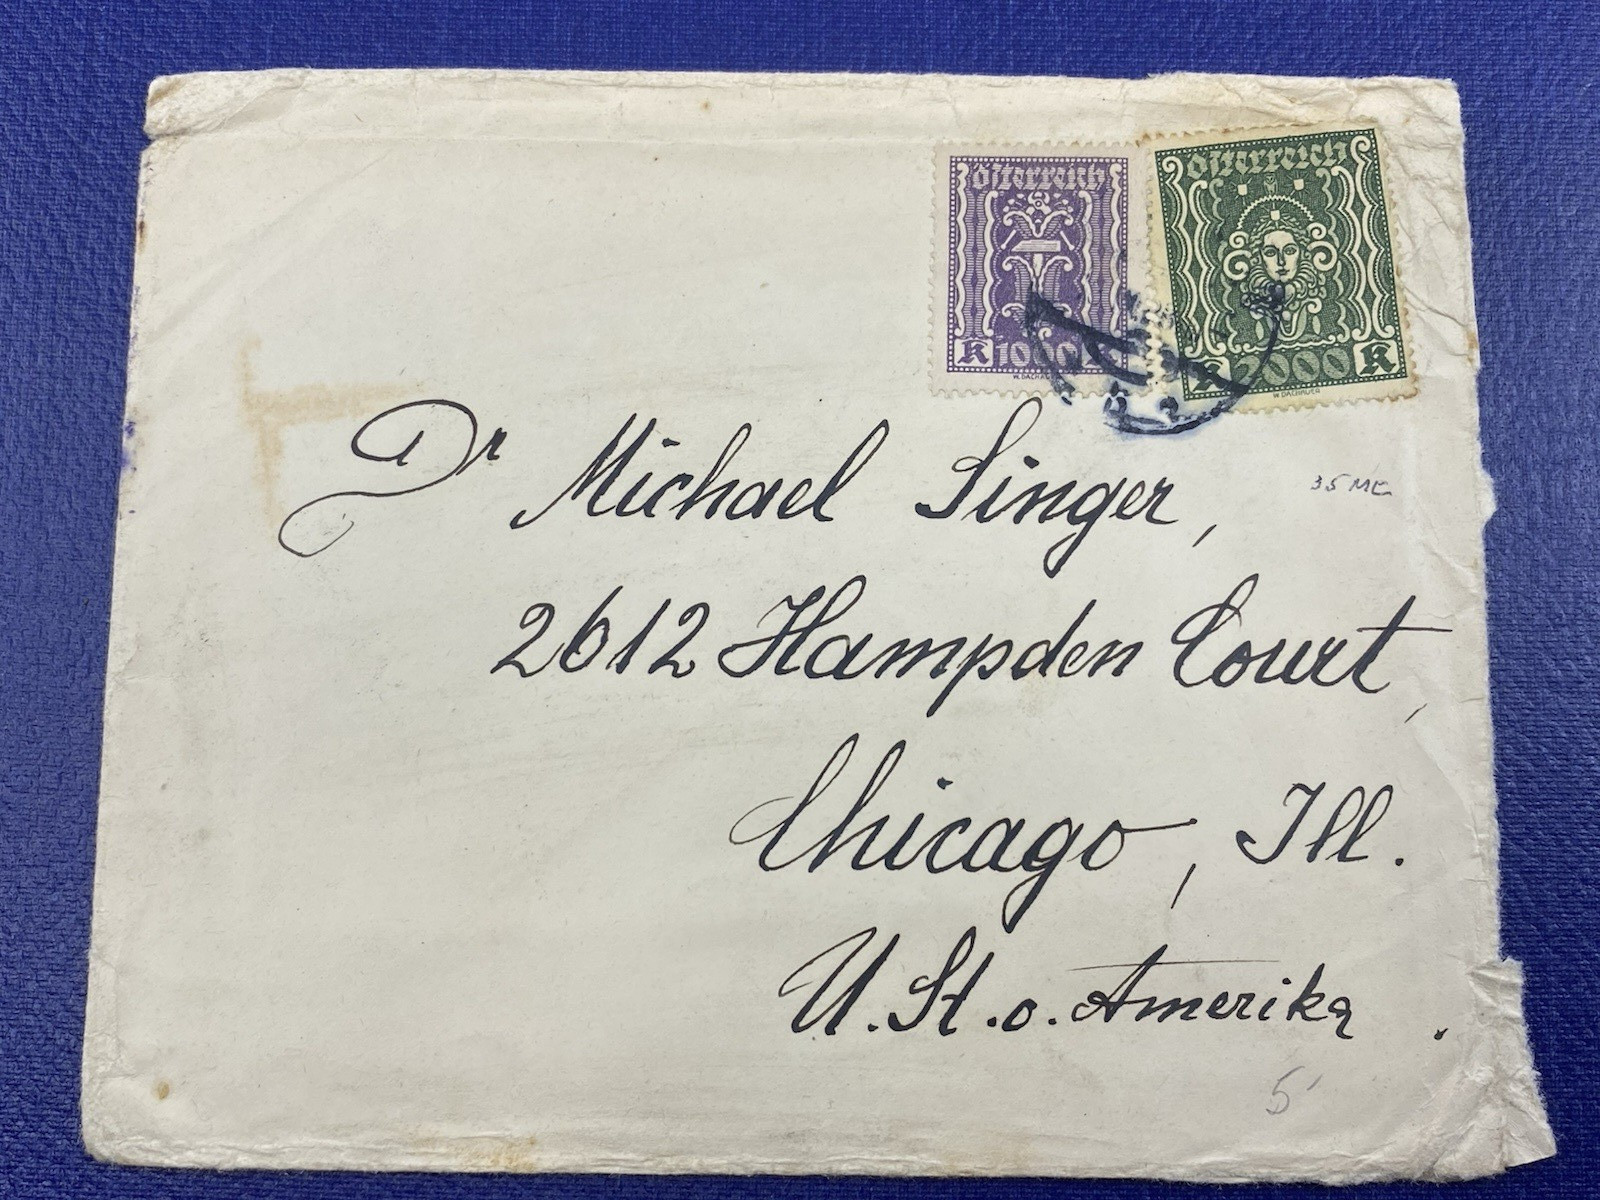 österreich
K 1000 K
W. DACHAUER
österreich
K 2000 K
W. DACHAUER
Dr Michael Singer,
35 ME
2612 Hampden Court,
Chicago, Ill.
U. St. o. Amerika.
5